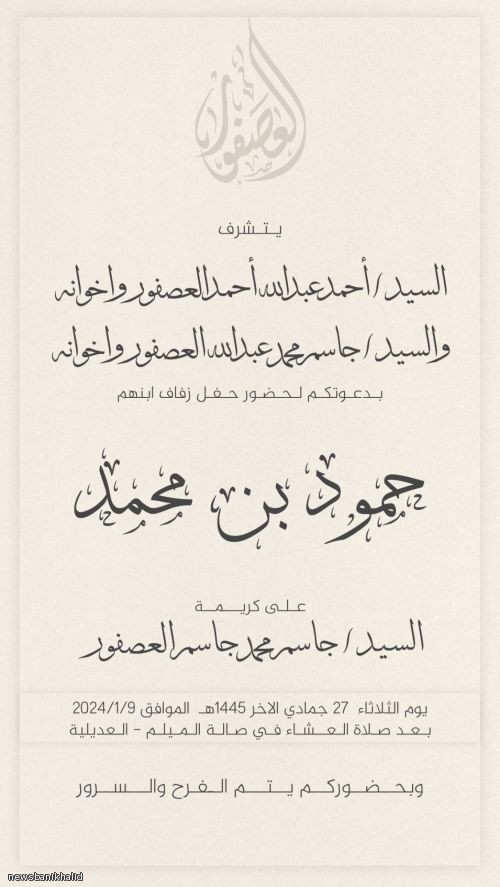 العصفور
يتشرف
السيد / أحمد عبدالله أحمد العصفور واخوانه
والسيد / جاسم محمد عبدالله العصفور واخوانه
بدعوتكم لحضور حفل زفاف ابنهم
حمود بن محمد
على كريمة
السيد / جاسم محمد جاسم العصفور
يوم الثلاثاء 27 جمادي الاخر 1445هـ الموافق 2024/1/9
بعد صلاة العشاء في صالة الميلم - العديلية
وبحضوركم يتم الفرح والسرور
newsbanikhalid